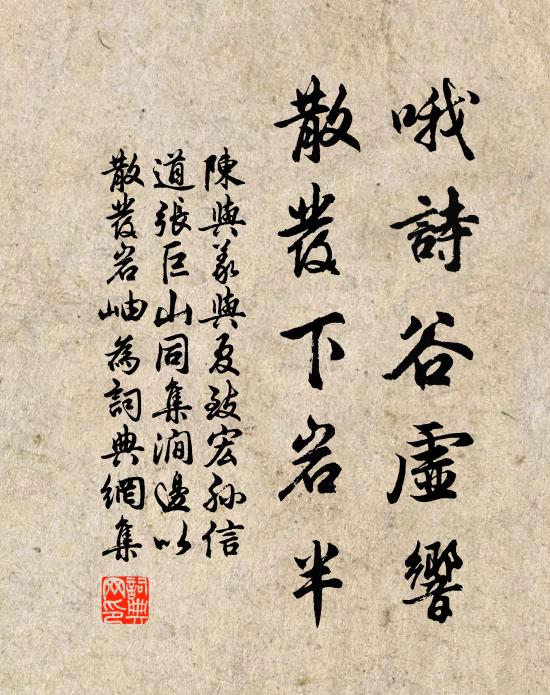 哦詩谷虛響
散發下岩半
陳與義與夏致宏孫信
道張巨山同集澗邊以
散發岩岫為詞典網集
詞典網印